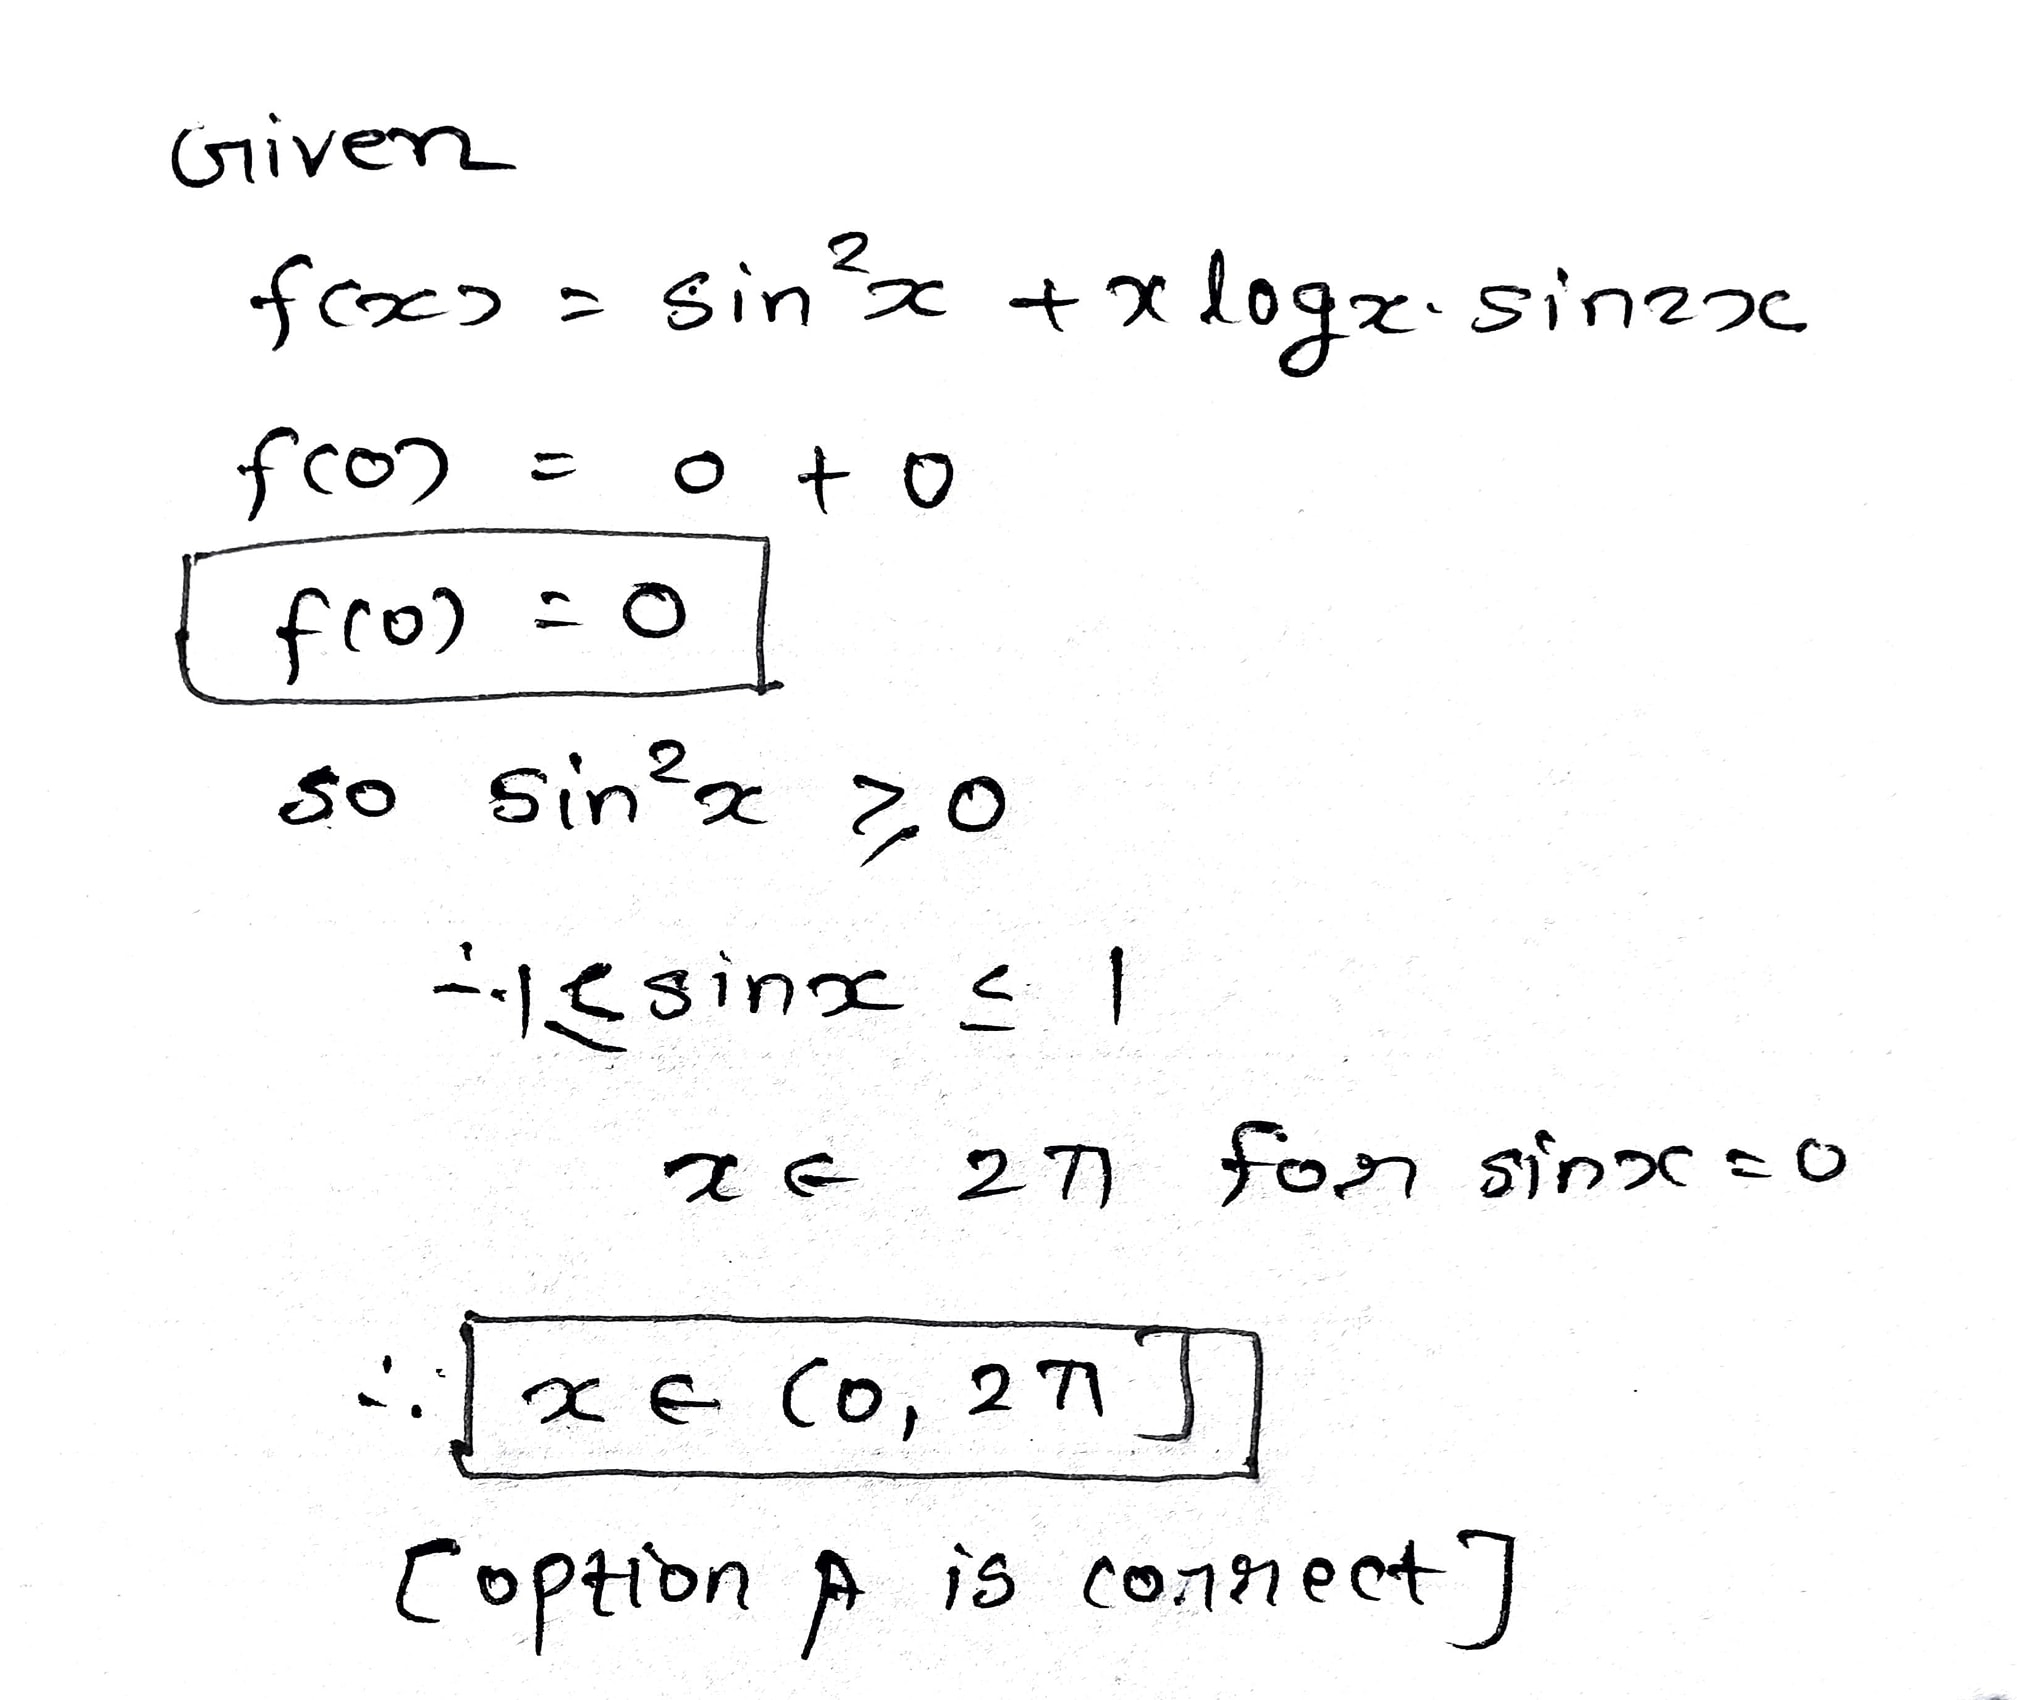 Given
f(x) = sin²x + x logx. sin2x
f(0) = 0 + 0
f(0) = 0
so sin²x ≥ 0
∴ -1 ≤ sinx ≤ 1
x ∈ 2π for sinx = 0
∴ x ∈ (0, 2π]
[option A is correct]